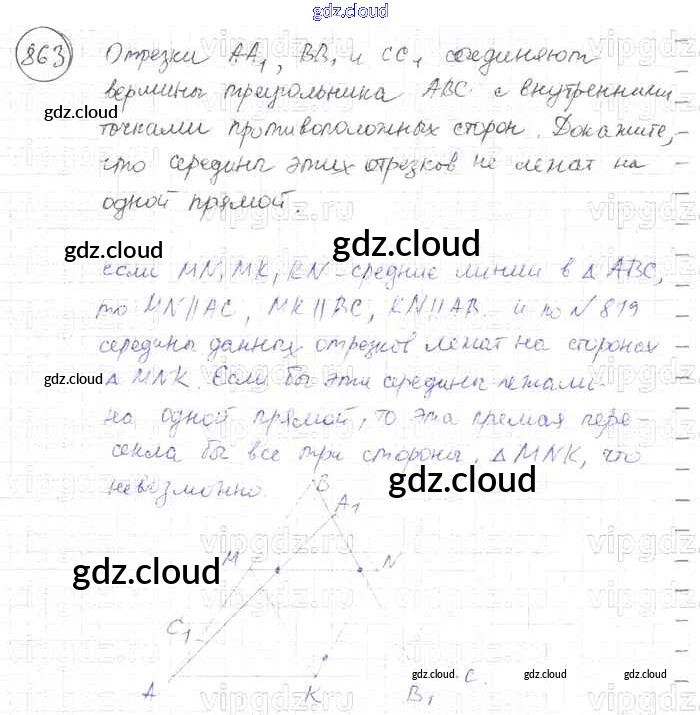 gdz.cloud
863 Отрезки AA₁, BB₁ и CC₁ соединяют
вершины треугольника ABC с внутренними
gdz.cloud
точками противоположных сторон. Докажите,
что середины этих отрезков не лежат на
одной прямой.
vipgdz.ru
gdz.cloud gdz.cloud
если MN, MK, KN - средние линии в △ ABC,
то MN || AC, MK || BC, KN || AB. и по N 819
середины данных отрезков лежат на сторонах
gdz.cloud
△ MNK. Если бы эти середины лежали
на одной прямой, то эта прямая пере-
секла бы все три стороны △ MNK, что
невозможно.
gdz.cloud
B
A₁
M
N
gdz.cloud
C₁
A
K
B₁
C
gdz.cloud gdz.cloud